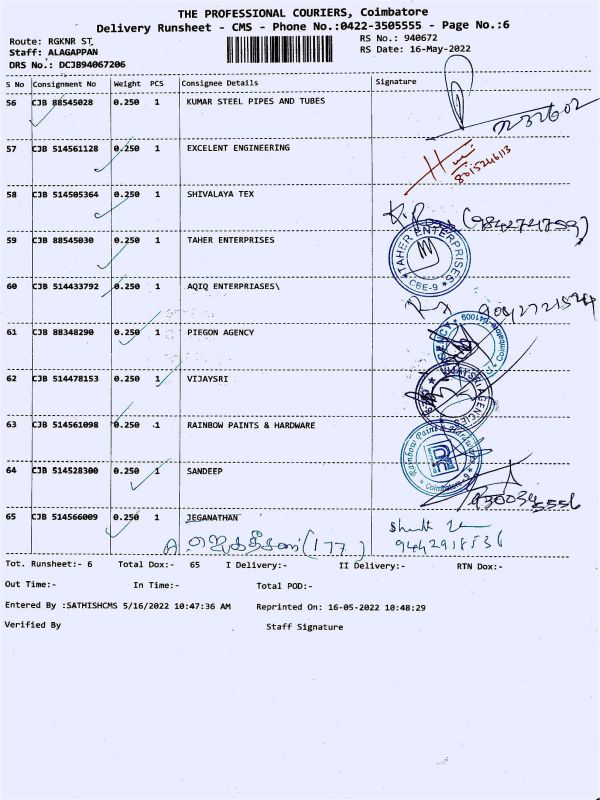 THE PROFESSIONAL COURIERS, Coimbatore
Delivery Runsheet - CMS - Phone No.:0422-3505555 - Page No.:6
Route: RGKNR ST
RS No.: 940672
Staff: ALAGAPPAN
RS Date: 16-May-2022
DRS No.: DCJB94067206
S No Consignment No Weight PCS Consignee Details Signature
56 CJB 88545028 0.250 1 KUMAR STEEL PIPES AND TUBES
57 CJB 514561128 0.250 1 EXCELENT ENGINEERING
8015246113
58 CJB 514505364 0.250 1 SHIVALAYA TEX
59 CJB 88545030 0.250 1 TAHER ENTERPRISES
TAHER ENTERPRISES
CBE-9
60 CJB 514433792 0.250 1 AQIQ ENTERPRIASES\
61 CJB 88348290 0.250 1 PIEGON AGENCY
62 CJB 514478153 0.250 1 VIJAYSRI
VIJAYSRI AGENCIES
63 CJB 514561098 0.250 .1 RAINBOW PAINTS & HARDWARE
Rainbow Paints & Hardwares
R
Coimbatore
64 CJB 514528300 0.250 1 SANDEEP
65 CJB 514566009 0.250 1 JEGANATHAN
9442918536
(177)
Tot. Runsheet:- 6 Total Dox:- 65 I Delivery:- II Delivery:- RTN Dox:-
Out Time:- In Time:- Total POD:-
Entered By :SATHISHCMS 5/16/2022 10:47:36 AM Reprinted On: 16-05-2022 10:48:29
Verified By Staff Signature